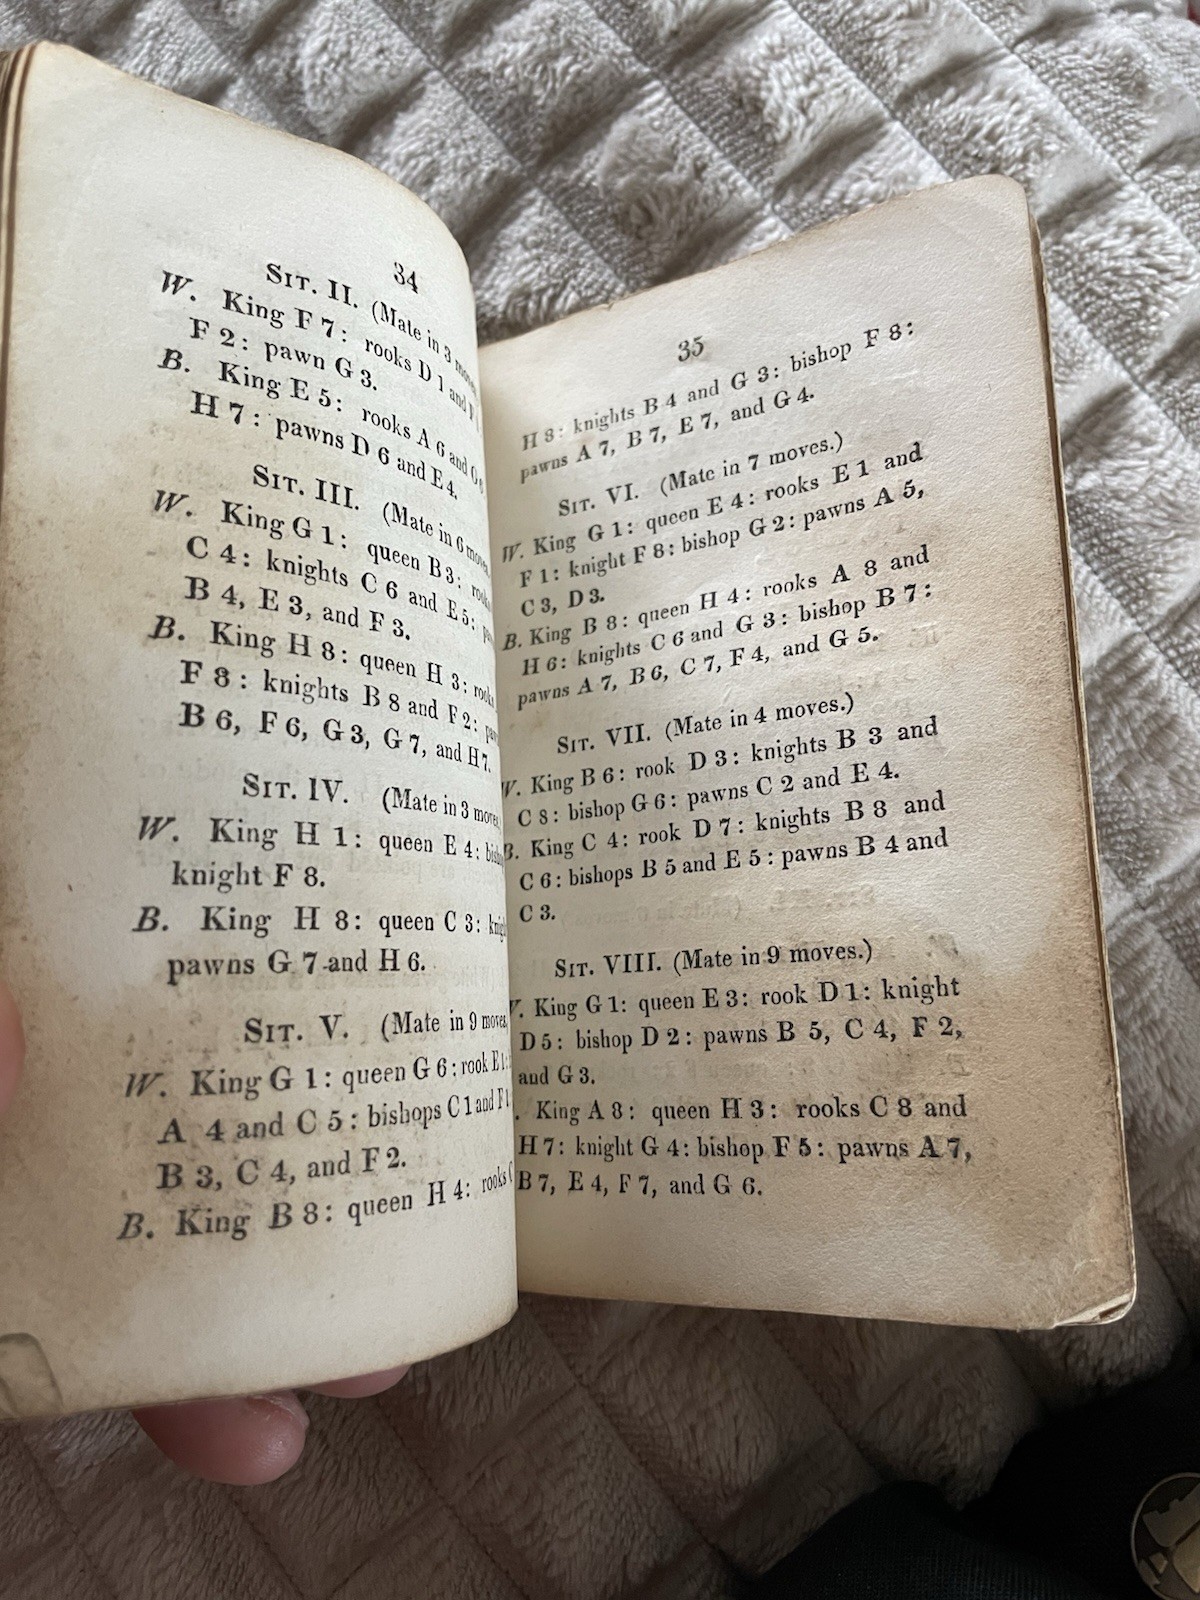 34
SIT. II. (Mate in 3
W. King F 7: rooks D 1 and
F 2: pawn G 3.
B. King E 5: rooks A 6 and
H 7: pawns D 6 and E 4.
SIT. III. (Mate in 6 moves,
W. King G 1: queen B 3:
C 4: knights C 6 and E 5:
B 4, E 3, and F 3.
B. King H 8: queen H 3:
F 8: knights B 8 and F 2:
B 6, F 6, G 3, G 7, and H 7.
SIT. IV. (Mate in 3 moves
W. King H 1: queen E 4:
knight F 8.
B. King H 8: queen C 3:
pawns G 7 and H 6.
SIT. V. (Mate in 9 moves
W. King G 1: queen G 6: rook E 1:
A 4 and C 5: bishops C 1 and F 1
B 3, C 4, and F 2.
B. King B 8: queen H 4: rooks
35
H 8: knights B 4 and G 3: bishop F 8:
pawns A 7, B 7, E 7, and G 4.
SIT. VI. (Mate in 7 moves.)
W. King G 1: queen E 4: rooks E 1 and
F 1: knight F 8: bishop G 2: pawns A 5,
C 3, D 3.
B. King B 8: queen H 4: rooks A 8 and
H 6: knights C 6 and G 3: bishop B 7:
pawns A 7, B 6, C 7, F 4, and G 5.
SIT. VII. (Mate in 4 moves.)
King B 6: rook D 3: knights B 3 and
C 8: bishop G 6: pawns C 2 and E 4.
King C 4: rook D 7: knights B 8 and
C 6: bishops B 5 and E 5: pawns B 4 and
C 3.
SIT. VIII. (Mate in 9 moves.)
King G 1: queen E 3: rook D 1: knight
D 5: bishop D 2: pawns B 5, C 4, F 2,
and G 3.
King A 8: queen H 3: rooks C 8 and
H 7: knight G 4: bishop F 5: pawns A 7,
B 7, E 4, F 7, and G 6.